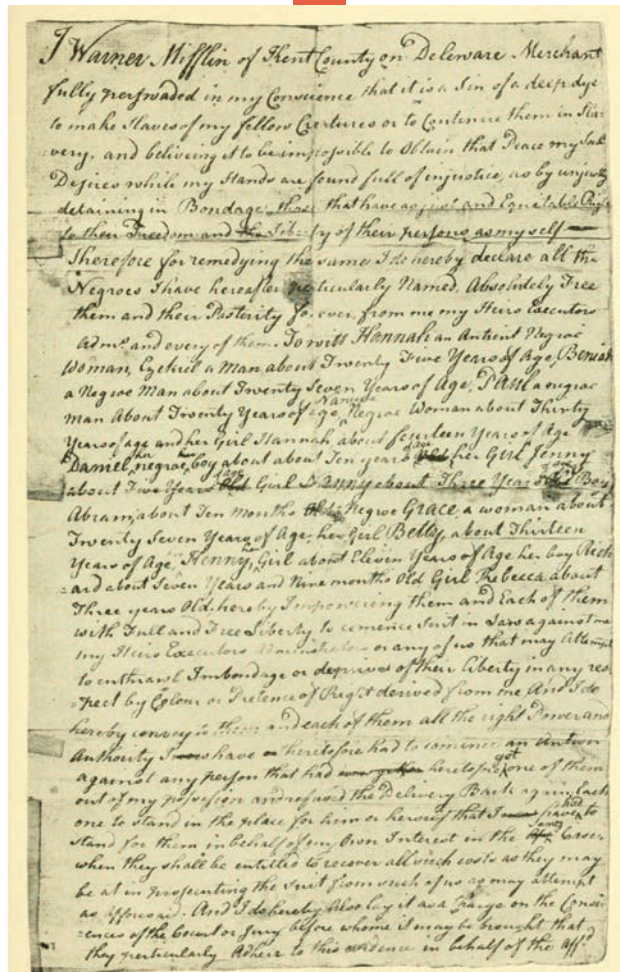 I Warner Mifflin of Kent County on Deleware Merchant
fully perswaded in my Conscience that it is a Sin of a deep dye
to make Slaves of my fellow Creatures or to Continue them in Sla-
=very, and beliveing it to be impossible to Obtain that Peace my Soul
Desires while my Hands are found full of injustice, as by unjustly
detaining in Bondage, those that have as just and Equitable Right
to their Freedom and the Liberty of their persons as myself
Therefore for remedying the same I do hereby declare all the
Negroes I have hereafter perticularly Named, Absolutely Free
them and their Posterity for ever, from me my Heirs Executors
Adms. and every of them. To witt Hannah an Antient Negroe
Woman, Ezekiel a Man about Twenty Five Years of Age, Beniah
a Negroe Man about Twenty Seven Years of Age, Paul a negroe
man About Twenty Years of age, Negroe Woman about Thirty
Years of age and her Girl Hannah, about fourteen Years of Age
Daniel, her negroe boy about about Ten years Age her Girl Jenny
about Five Years Age Girl about Three Years Boy
Abram, about Ten months Old, Negroe Grace, a woman about
Twenty Seven Years of Age, her Girl Betty, about Thirteen
Years of Age, Henny, her Girl about Eleven Years of Age her boy Rich
=ard about Seven Years and Nine months Old Girl Rebecca about
Three years Old. hereby Impowering them and Each of them
with Full and Free Liberty to comence Suit in Law against me
my Heirs Executors Administrators or any of us that may Attempt
to enthrawl Imbondage or deprive of their Liberty in any res-
=pect by Colour or Pretence of Right derived from me And I do
hereby convey to them and each of them all the right Power and
Authority I have or heretofore had to comince an Action
against any person that had heretofore got one of them
out of my possession and refused the Delivery Back again, Each
one to stand in the place for him or herself that I had to
stand for them in behalf of my Own Interest in the Same Case.
when they shall be entitled to recover all such costs as they may
be at in prosecuting the Suit from such of us as may attempt
as afforsaid. And I do hereby Also lay it as a Charge on the Consci
=ences of the Court or Jury before whome it may be brought that
they perticularly Adhere to this evidence in behalf of the affd.